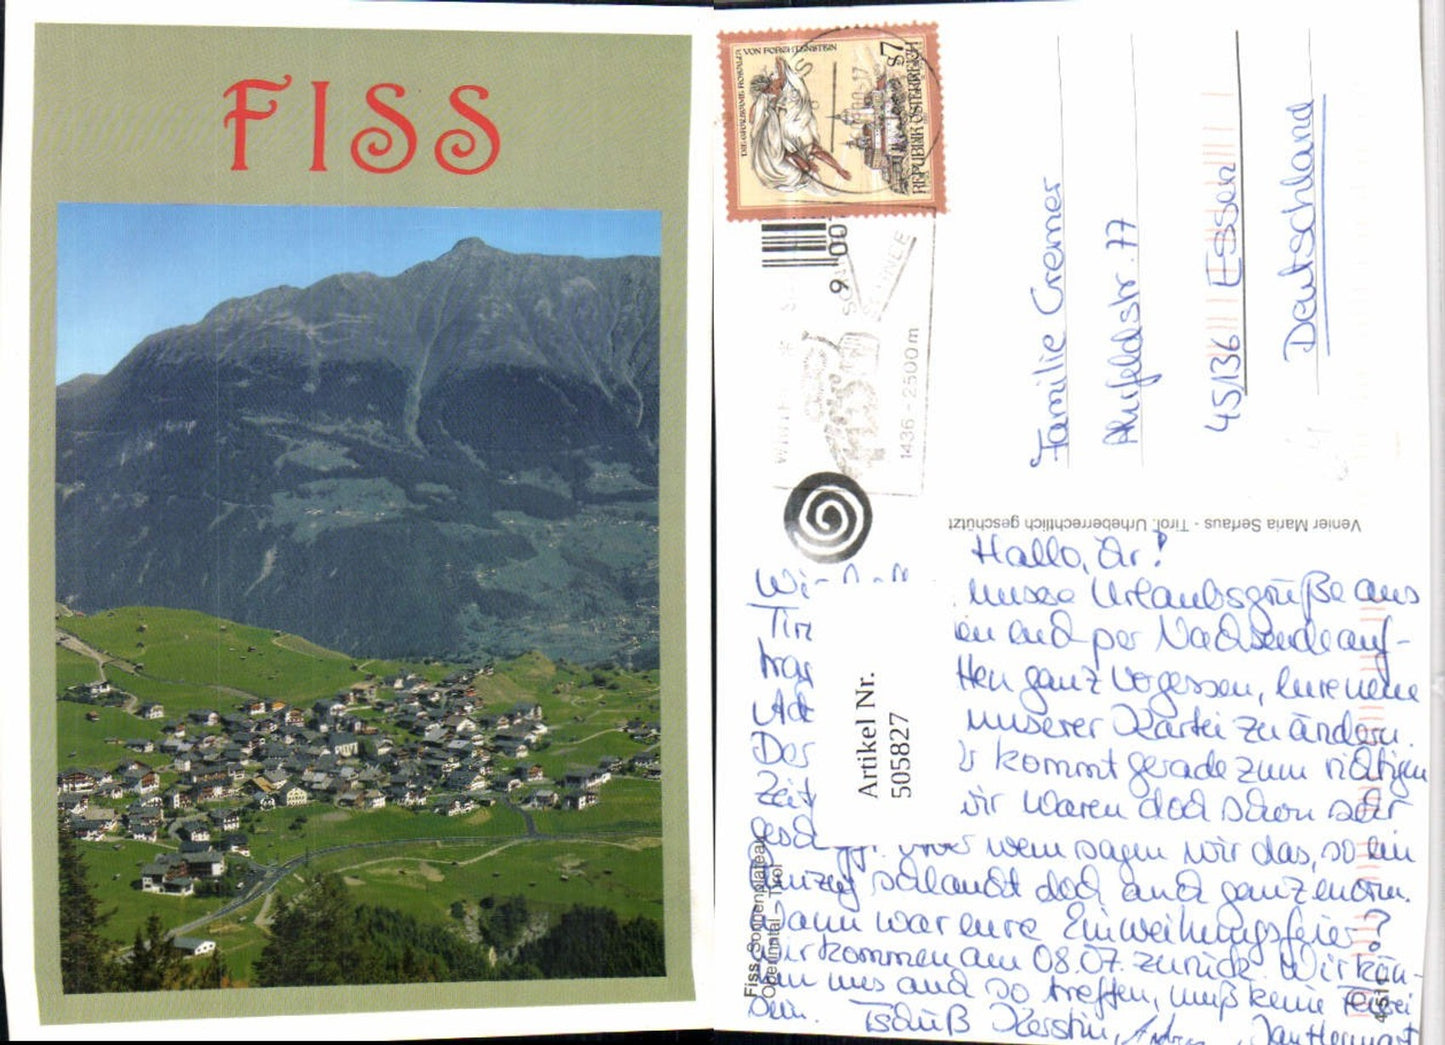 FISS
DIE GRAUSAME ROSALIA VON FORCHTENSTEIN
S7
REPUBLIK ÖSTERREICH
SCHNEE
1436 - 2500 m
Familie Cremer
Ahrfeldstr. 77
45136 Essen
Deutschland
Venier Maria Serfaus - Tirol. Urheberrechtlich geschützt
Artikel Nr.
505827
Fiss, Sonnenplateau
Oberinntal - Tirol
Hallo, Ihr!
unsere Urlaubsgrüße aus
Tir en auch per Nachsendeauf-
trag tten ganz vergessen, eure neue
Adr unserer Kartei zu ändern.
Der kommt gerade zum richtigen
Zeit wir waren doch schon sehr
gesch Aber wem sagen wir das, so ein
Umzug schlaucht doch auch ganz enorm.
Wann war eure Einweihungsfeier?
Wir kommen am 08.07. zurück. Wir kön-
nen uns auch so treffen, muß keine Feier
sein. Tschüß Kerstin, Jan Hennart